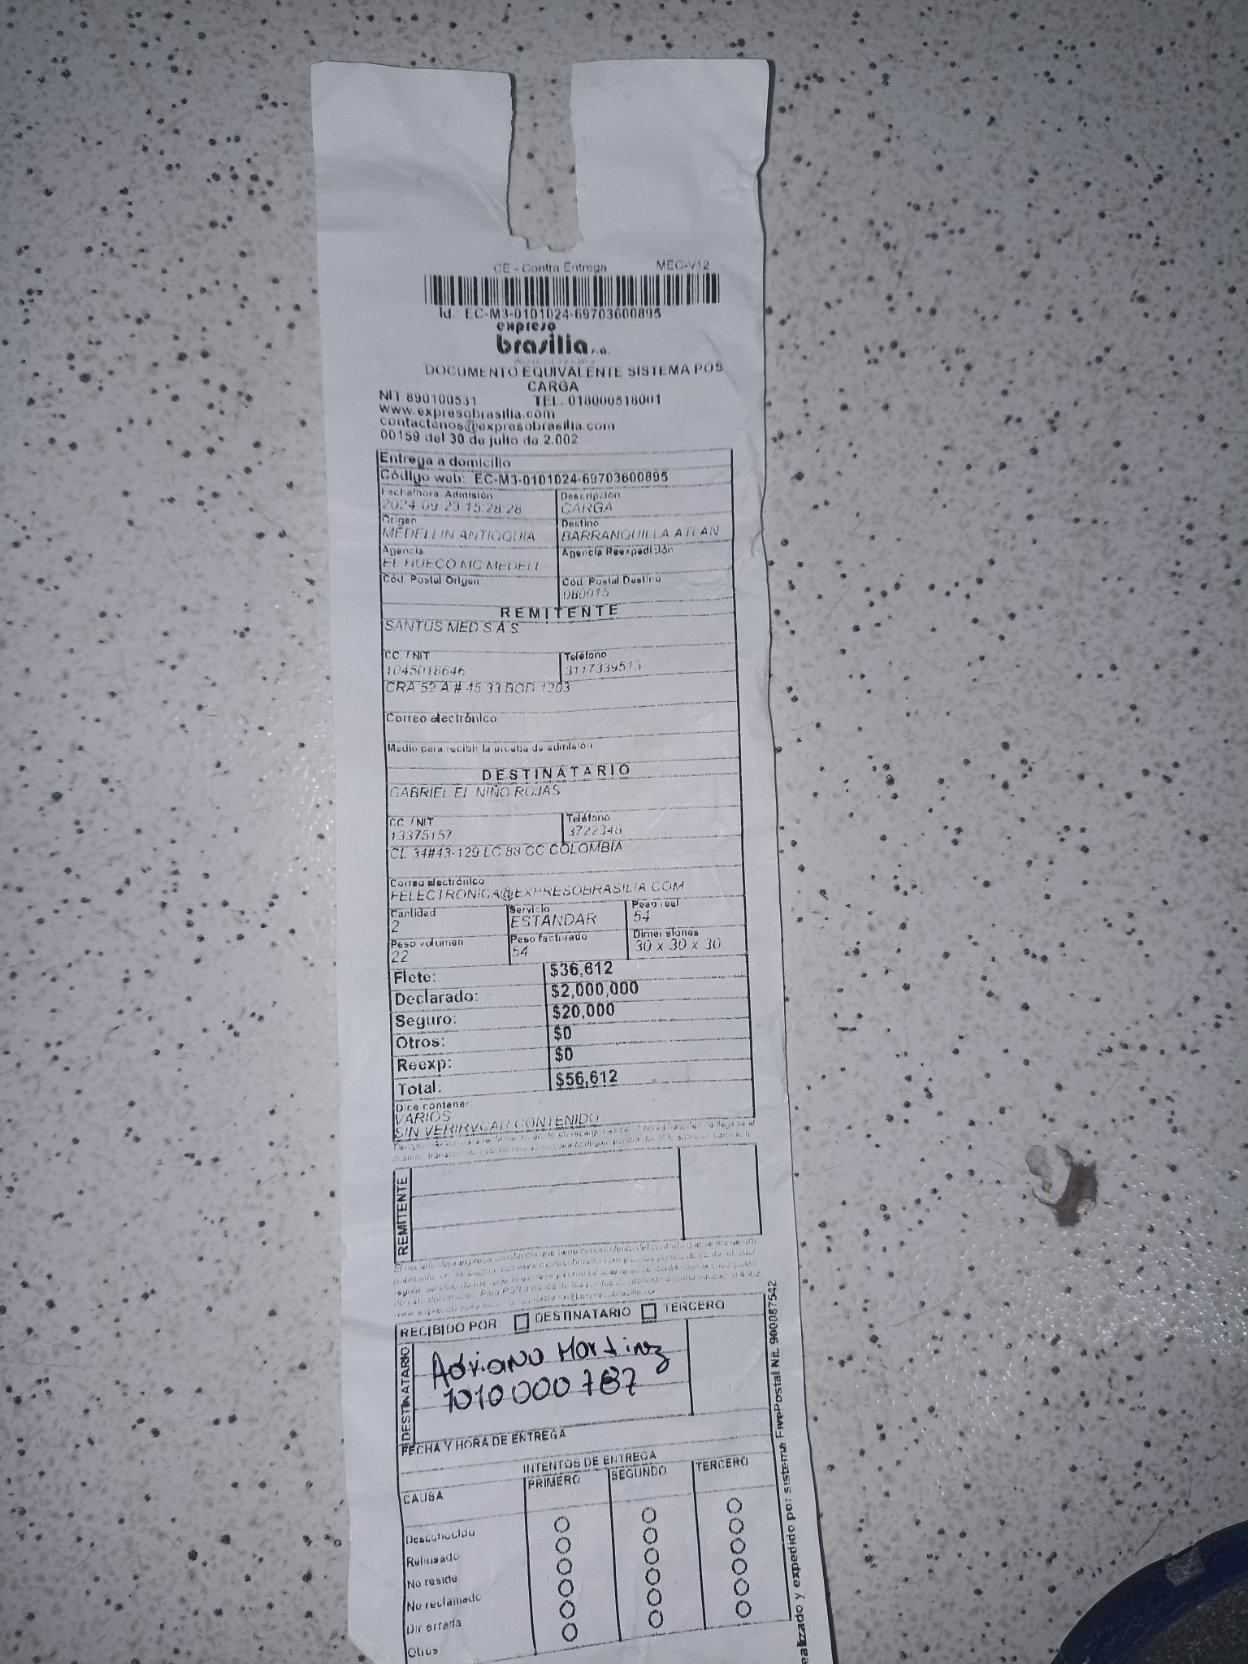 CE - Contra Entrega MEC-V12
Id.: EC-M3-0101024-69703600895
expreso
brasilia s.a.
DOCUMENTO EQUIVALENTE SISTEMA POS
CARGA
NIT 890100531 TEL. 018000518001
www.expresobrasilia.com
contactenos@expresobrasilia.com
00159 del 30 de julio de 2.002
Entrega a domicilio
Código web: EC-M3-0101024-69703600895
Fecha/hora Admisión Descripción
2024-09-23 15:28:28 CARGA
Origen Destino
MEDELLIN ANTIOQUIA BARRANQUILLA ATLAN
Agencia Agencia Reexpedición
EL HUECO MC MEDELL
Cód. Postal Origen Cód. Postal Destino
080015
REMITENTE
SANTUS MED S A S.
CC / NIT Teléfono
1045018646 3117339513
CRA 52 A # 45 33 BOD 1203
Correo electrónico
Medio para recibir la prueba de admisión
DESTINATARIO
GABRIEL EL NIÑO ROJAS
CC / NIT Teléfono
13375157 3722348
CL 34#43-129 LC 88 CC COLOMBIA
Correo electrónico
FELECTRONICA@EXPRESOBRASILIA.COM
Cantidad Servicio Peso real
2 ESTANDAR 54
Peso volumen Peso facturado Dimensiones
22 54 30 x 30 x 30
Flete: $36,612
Declarado: $2,000,000
Seguro: $20,000
Otros: $0
Reexp: $0
Total: $56,612
Dice contener:
VARIOS
SIN VERIRVCAR CONTENIDO
REMITENTE
RECIBIDO POR: DESTINATARIO TERCERO
DESTINATARIO
Adriano Martinez
1010000787
FECHA Y HORA DE ENTREGA
INTENTOS DE ENTREGA
CAUSA PRIMERO SEGUNDO TERCERO
Desconocido
Rehusado
No reside
No reclamado
Dir errada
Otros
ealizado y expedido por sistema FivePostal Nit. 900087542